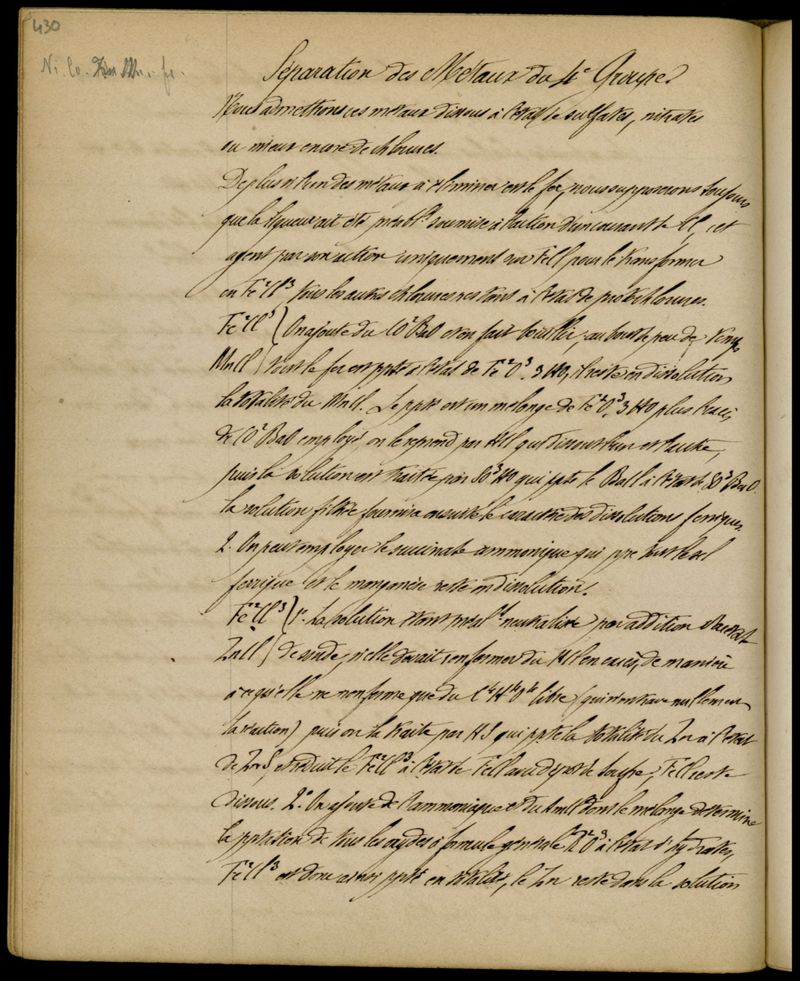 430
Ni. Co. Zn Mn. fe.
Séparation des Métaux du 4e Groupe
Nous admettrons ces métaux dissous à l'état de sulfates, nitrates
ou mieux encore de chlorures.
De plus si l'un des métaux à éliminer est le fer, nous supposerons toujours
que la liqueur ait été préabl.t soumise à l'action d'un courant de Cl, cet
agent par son action uniquement sur FeCl pour le transformer
en Fe2Cl3 tous les autres chlorures restant à l'état de protochlorures.
Fe2Cl3 } On ajoute du CO2BaO et on fait bouillir, au bout de peu de temps
MnCl } tout le fer est ppté à l'état de Fe2O3, 3HO, il reste en dissolution
la totalité du MnCl. Le ppté est un mélange de Fe2O3, 3HO plus l'excès
de CO2BaO employé on le reprend par HCl qui dissout l'un et l'autre,
puis la solution est traitée par SO3HO qui ppte le BaCl à l'état de SO3BaO
la solution filtrée fournira ensuite le caractère des dissolutions ferriques
2. On peut employer le succinate ammonique qui ppte tout le sel
ferrique et le manganèse reste en dissolution.
Fe2Cl3 } 1o La solution étant préal.bt neutralisée par addition d'acétate
ZnCl } de soude, si elle devait renfermer du HCl en excès, de manière
à ce qu'elle ne renferme que du C4H4O4 libre (qui n'entrave nullement
la réaction) puis on la traite par HS qui ppte la totalité du Zn à l'état
de ZnS et réduit le Fe2Cl3 à l'état de FeCl avec dépôt de soufre, FeCl reste
dissous. 2o On ajoute de l'ammoniaque et du AmCl dont le mélange détermine
la pptation de tous les oxydes à formule générale R2O3 à l'état d'hydrates,
Fe2Cl3 est donc ainsi ppté en totalité, le Zn reste dans la solution